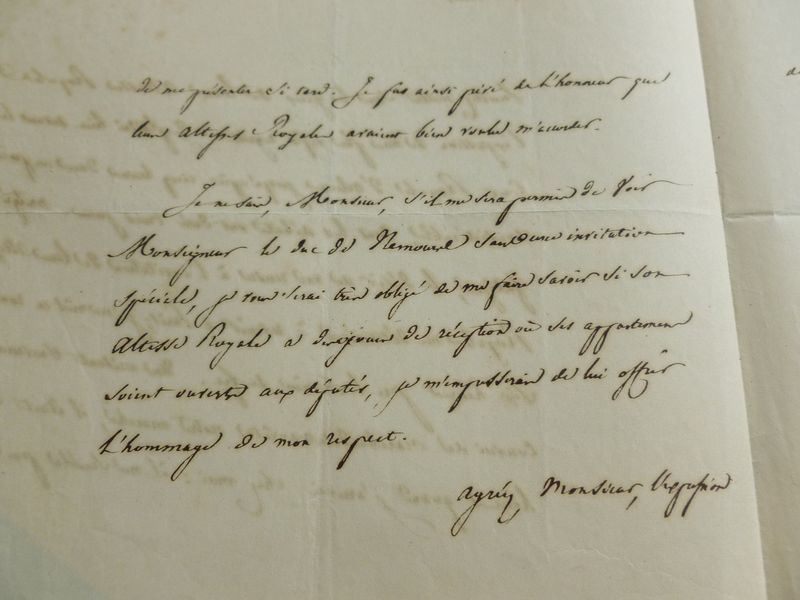 de me présenter si tard. Je fus ainsi privé de l'honneur que
leurs altesses Royales avaient bien voulu m'accorder.
Je ne sais, Monsieur, s'il me sera permis de voir
Monseigneur le duc de Nemours sans une invitation
spéciale, je vous serai très obligé de me faire savoir si son
altesse Royale a des jours de réception où ses appartements
soient ouverts aux députés, je m'empresserai de lui offrir
l'hommage de mon respect.
agréez, Monsieur, l'expression